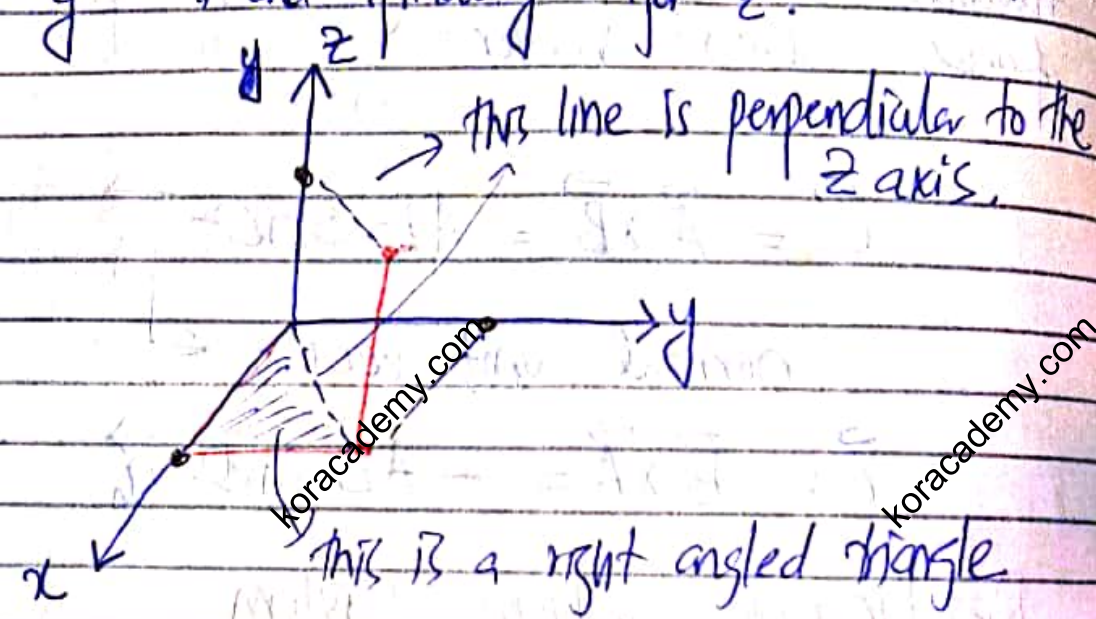 y z
this line is perpendicular to the
Z axis.
y
koracademy.com
koracademy.com
this is a right angled triangle
x